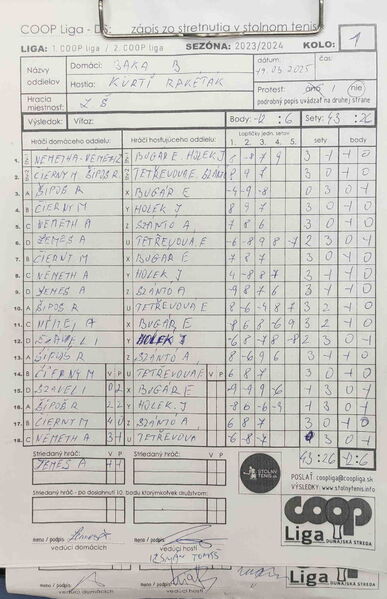 COOP Liga - DS: zápis zo stretnutia v stolnom tenise
LIGA: 1.COOP liga / 2.COOP liga SEZÓNA: 2023/2024 KOLO: 1
Názvy oddielov Domáci: BAKA B dátum: 19.03.2025 čas:
Hostia: KURTI RAKETAK Protest: áno / nie
Hracia miestnosť: ZŠ podrobný popis uvádzať na druhej strane
Výsledok: Výzva: Body: 12 : 6 Sety: 43 : 26
Hráči domáceho oddielu: Hráči hosťujúceho oddielu: Loptičky jedn. setov: 1. 2. 3. 4. 5. sety body
1. NEMETHA - NEMEŠ Z BUGÁR E HOLEK J 3 1 1 0
2. ČIERNY M ŠÍPOŠ R TETREVOVÁ E, SZÁNTÓ A 8 9 7 3 0 1 0
3. A ŠÍPOŠ R X BUGÁR E -4 -9 -8 0 3 0 1
4. B ČIERNY M Y HOLEK J 8 9 7 3 0 1 0
5. C NEMETH A Z SZÁNTÓ A 7 8 6 3 0 1 0
6. D NEMEŠ A U TETREVOVÁ E -6 -8 9 8 -7 2 3 0 1
7. B ČIERNY M X BUGÁR E 7 8 7 3 0 1 0
8. C NEMETH A Y HOLEK J 4 -8 8 7 3 1 1 0
9. D NEMEŠ A Z SZÁNTÓ A 8 7 6 3 1 1 0
10. A ŠÍPOŠ R U TETREVOVÁ E 8 -6 -4 8 7 3 2 1 0
11. C NEMETH A X BUGÁR E 8 6 8 -6 9 3 2 1 0
12. D SZAVEL I Y HOLEK J -6 8 -7 8 -8 2 3 0 1
13. A ŠÍPOŠ R Z SZÁNTÓ A 8 -6 9 6 3 1 1 0
14. B ČIERNY M V P U TETREVOVÁ E V P 6 8 7 3 0 1 0
15. D SZAVEL I 0 2 X BUGÁR E -9 -9 9 -6 1 3 0 1
16. A ŠÍPOŠ R 2 2 Y HOLEK J -8 6 -6 -9 1 3 0 1
17. B ČIERNY M 4 0 Z SZÁNTÓ A 6 8 7 3 0 1 0
18. C NEMETH A 3 1 U TETREVOVÁ E -6 -8 -7 0 3 0 1
Striedaný hráč: V P Striedaný hráč: V P 43 : 26 12 : 6
NEMEŠ A 1 1
STOLNÝ TENIS.EU
POSLAŤ: coopliga@coopliga.sk
VÝSLEDKY: www.stolnytenis.info
Striedaný hráč - po dosiahnutí 10. bodu ktorýmkoľvek družstvom:
coop
Liga DUNAJSKÁ STREDA
meno / podpis
vedúci domácich
meno / podpis
vedúci hostí
meno / podpis
vedúci domácich
meno / podpis
vedúci hostí
Liga DUNAJSKÁ STREDA